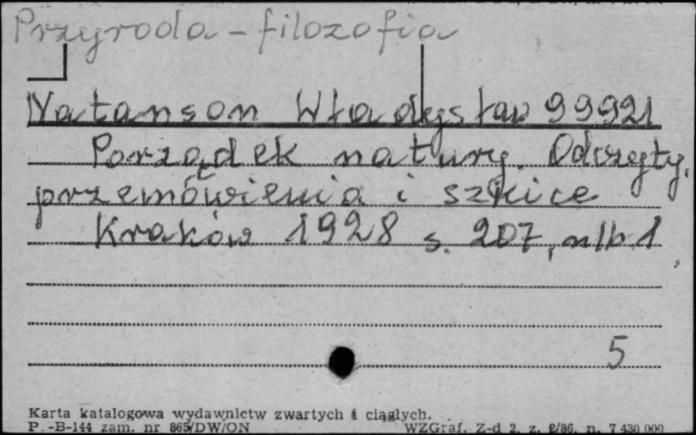 Przyroda - filozofia
Natanson Władysław 99921
Porządek natury. Odczyty,
przemówienia i szkice
Kraków 1928 s. 207, nlb 1
5
Karta katalogowa wydawnictw zwartych i ciągłych.
P.-B-144 zam. nr 865/DW/ON WZGraf. Z-d 2, z. 2/86, n. 7 430 000